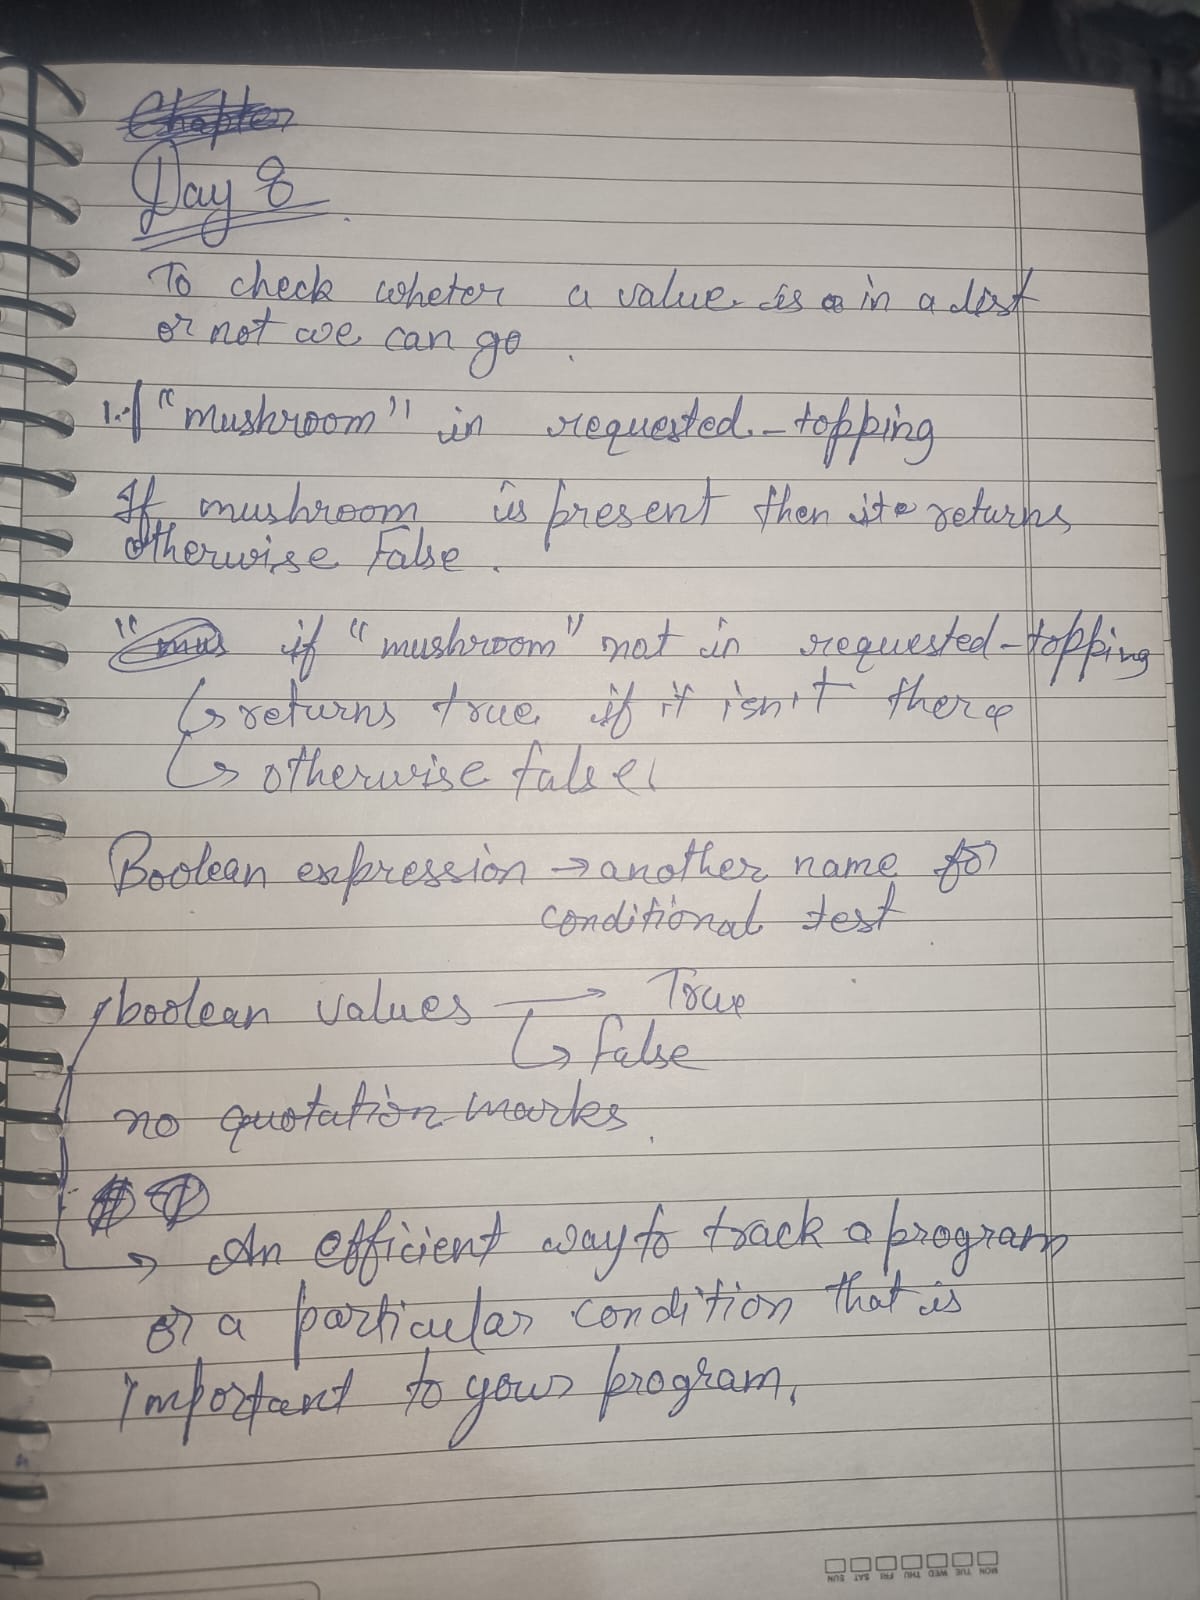 Chapter
Day 8
To check wheter a value is in a list
or not we can go.
1. "mushroom" in requested_topping
If mushroom is present then it returns
otherwise False.
" mus if "mushroom" not in requested_topping
↳ returns true if it isn't there
↳ otherwise false.
Boolean expression → another name for
conditional test
boolean values → True
↳ false
no quotation marks.
→ An efficient way to track a program
or a particular condition that is
important to your program.
MON TUE WED THU FRI SAT SUN